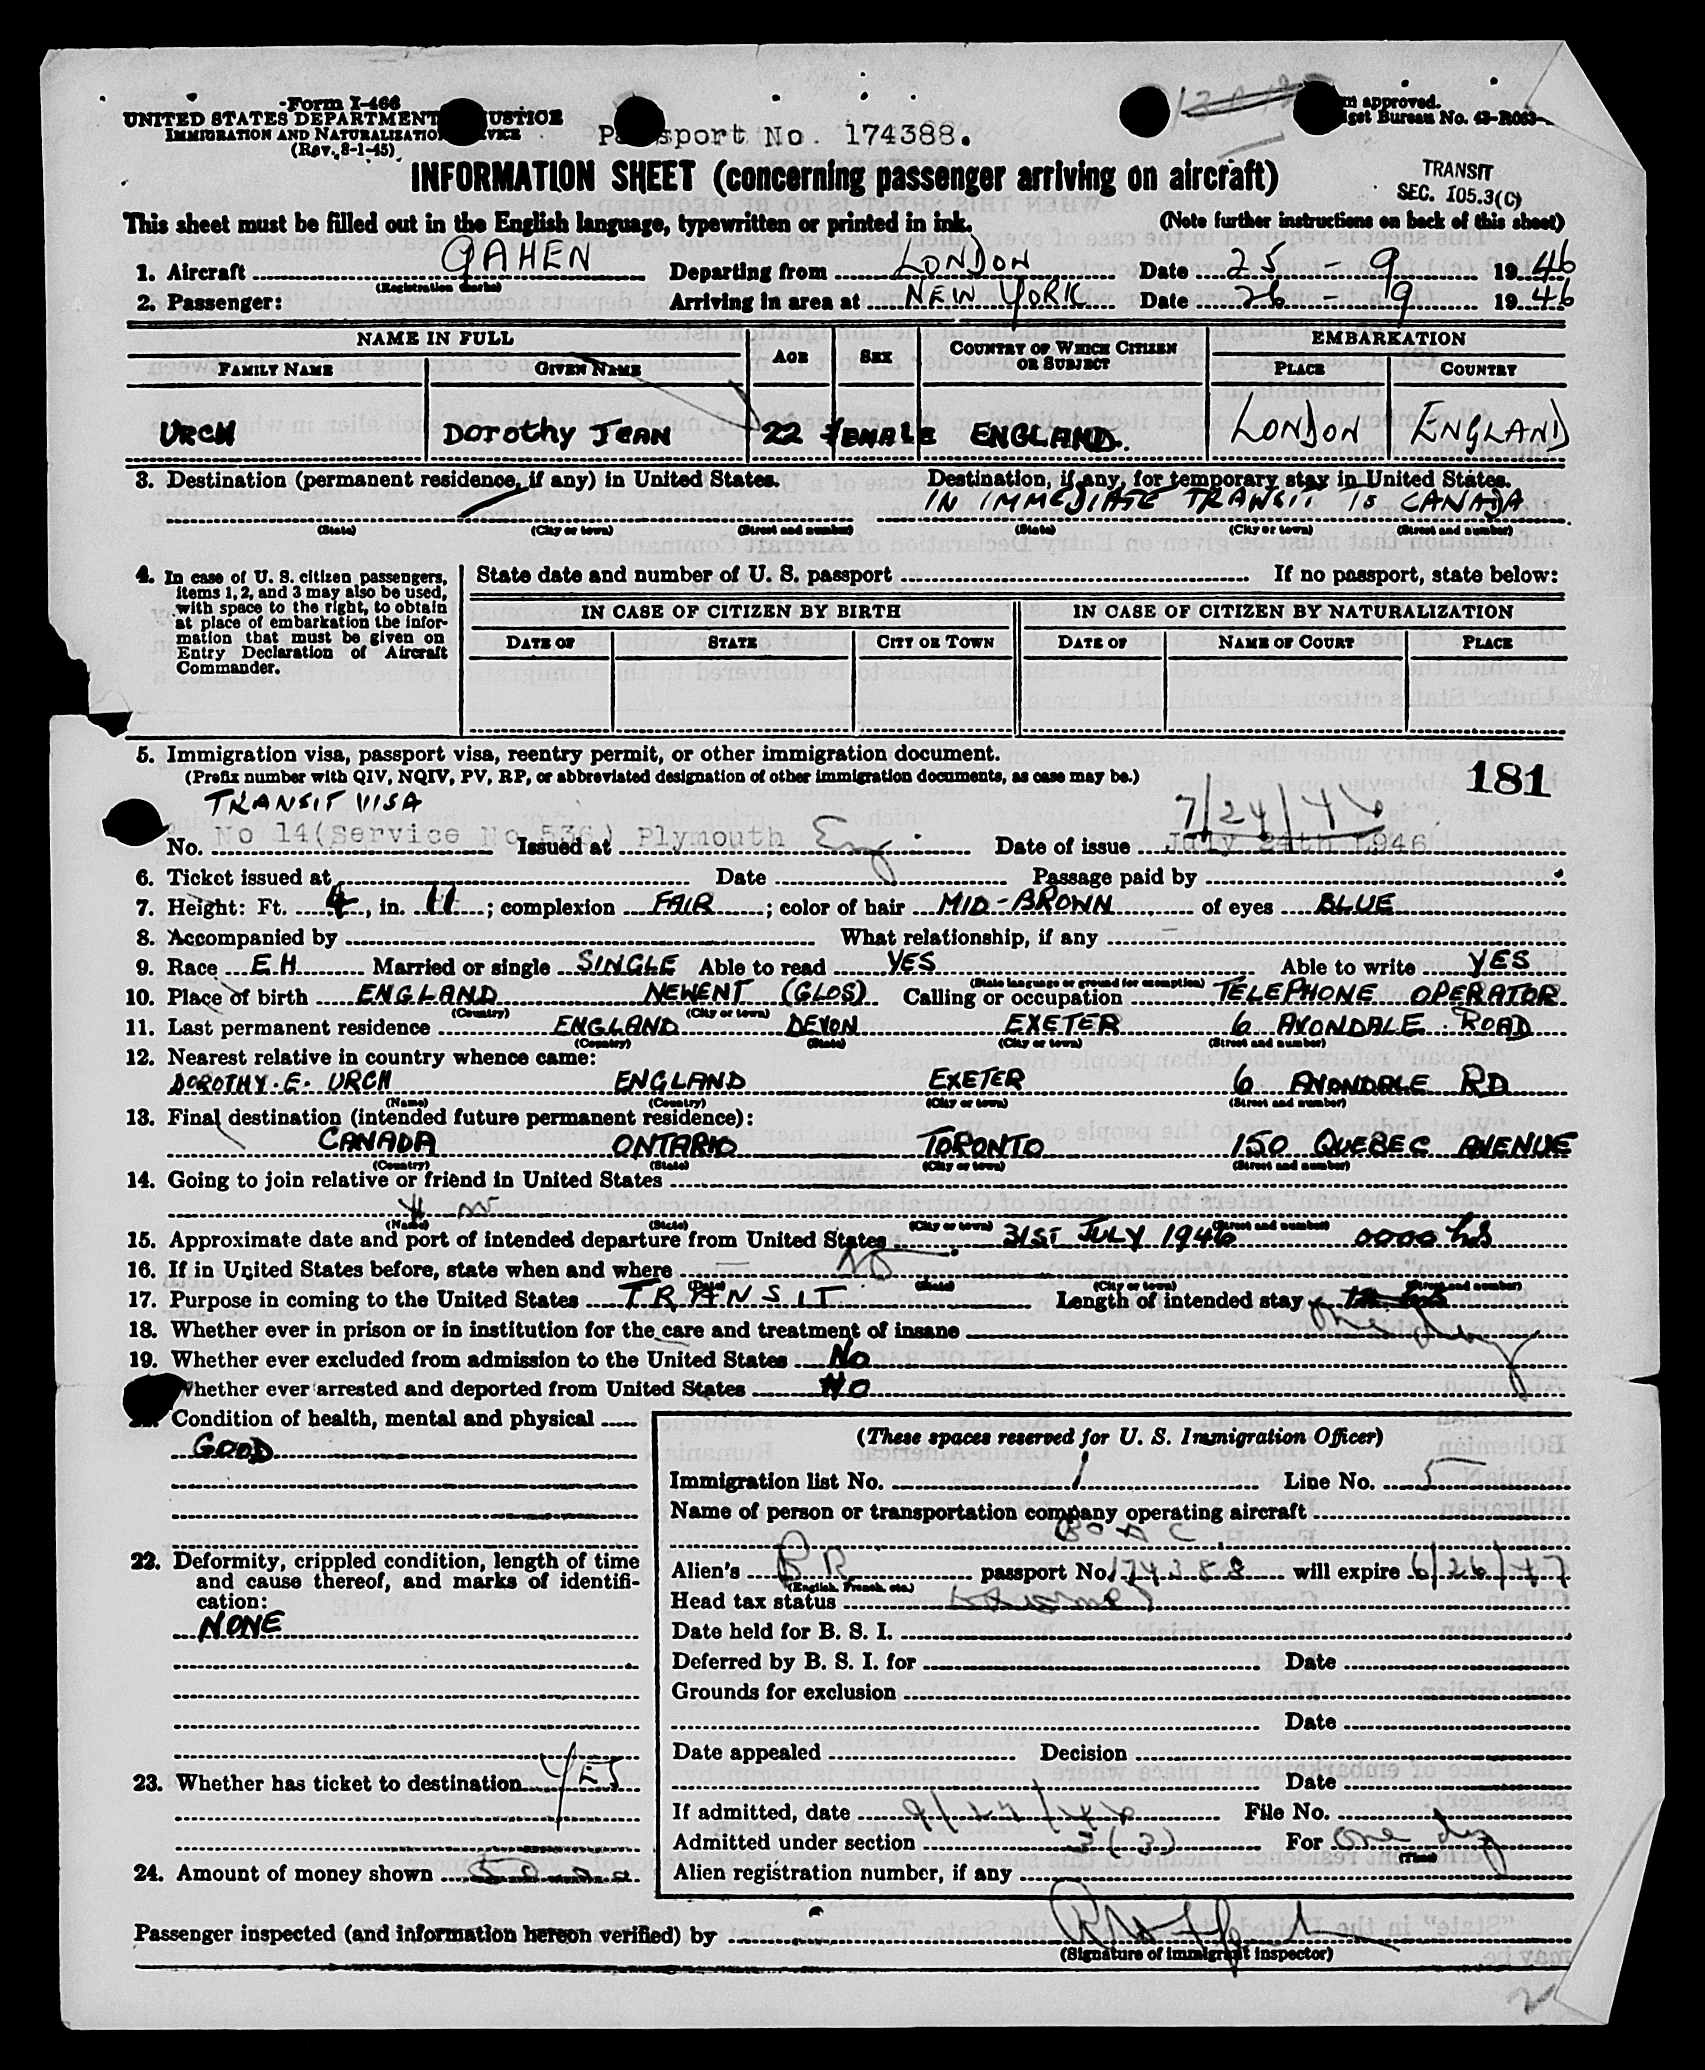 Form I-466
UNITED STATES DEPARTMENT JUSTICE
IMMIGRATION AND NATURALIZATION SERVICE
(Rev. 8-1-45)
Passport No. 174388.
approved.
Bureau No. 43-R063-
INFORMATION SHEET (concerning passenger arriving on aircraft)
TRANSIT
SEC. 105.3(C)
This sheet must be filled out in the English language, typewritten or printed in ink. (Note further instructions on back of this sheet)
1. Aircraft GAHEN Departing from LONDON Date 25 - 9 1946
(Registration marks)
2. Passenger: Arriving in area at NEW YORK Date 26 - 9 1946
NAME IN FULL AGE SEX COUNTRY OF WHICH CITIZEN OR SUBJECT EMBARKATION
FAMILY NAME GIVEN NAME PLACE COUNTRY
URCH DOROTHY JEAN 22 FEMALE ENGLAND. LONDON ENGLAND
3. Destination (permanent residence, if any) in United States. Destination, if any, for temporary stay in United States.
IN IMMEDIATE TRANSIT TO CANADA
(State) (City or town) (Street and number) (State) (City or town) (Street and number)
4. In case of U. S. citizen passengers, items 1, 2, and 3 may also be used, with space to the right, to obtain at place of embarkation the information that must be given on Entry Declaration of Aircraft Commander.
State date and number of U. S. passport If no passport, state below:
IN CASE OF CITIZEN BY BIRTH IN CASE OF CITIZEN BY NATURALIZATION
DATE OF STATE CITY OR TOWN DATE OF NAME OF COURT PLACE
5. Immigration visa, passport visa, reentry permit, or other immigration document.
(Prefix number with QIV, NQIV, PV, RP, or abbreviated designation of other immigration documents, as case may be.)
181
TRANSIT VISA 7/24/46
No. No 14(Service No 536) Issued at Plymouth Eng Date of issue July 24th 1946
6. Ticket issued at Date Passage paid by
7. Height: Ft. 4, in. 11; complexion FAIR; color of hair MID-BROWN of eyes BLUE
8. Accompanied by What relationship, if any
9. Race EH Married or single SINGLE Able to read YES Able to write YES
(State language or ground for exemption)
10. Place of birth ENGLAND NEWENT (GLOS) Calling or occupation TELEPHONE OPERATOR
(Country) (City or town)
11. Last permanent residence ENGLAND DEVON EXETER 6 AVONDALE ROAD
(Country) (State) (City or town) (Street and number)
12. Nearest relative in country whence came:
DOROTHY. E. URCH ENGLAND EXETER 6 AVONDALE RD
(Name) (Country) (City or town) (Street and number)
13. Final destination (intended future permanent residence):
CANADA ONTARIO TORONTO 150 QUEBEC AVENUE
(Country) (State) (City or town) (Street and number)
14. Going to join relative or friend in United States
(Name) (State) (City or town) (Street and number)
15. Approximate date and port of intended departure from United States 31ST JULY 1946 0000 hrs
16. If in United States before, state when and where NO
(Date) (State) (City or town) (Street and number)
17. Purpose in coming to the United States TRANSIT Length of intended stay one day
18. Whether ever in prison or in institution for the care and treatment of insane
19. Whether ever excluded from admission to the United States NO
Whether ever arrested and deported from United States NO
Condition of health, mental and physical
GOOD
22. Deformity, crippled condition, length of time and cause thereof, and marks of identification:
NONE
23. Whether has ticket to destination YES
24. Amount of money shown
(These spaces reserved for U. S. Immigration Officer)
Immigration list No. 1 Line No. 5
Name of person or transportation company operating aircraft
BOAC
Alien's BR passport No. 174388 will expire 6/26/47
(English, French, etc.)
Head tax status
Date held for B. S. I.
Deferred by B. S. I. for Date
Grounds for exclusion
Date
Date appealed Decision
Date
If admitted, date 9/27/46 File No.
Admitted under section 3(3) For one day
(Time)
Alien registration number, if any
Passenger inspected (and information hereon verified) by
(Signature of immigrant inspector)